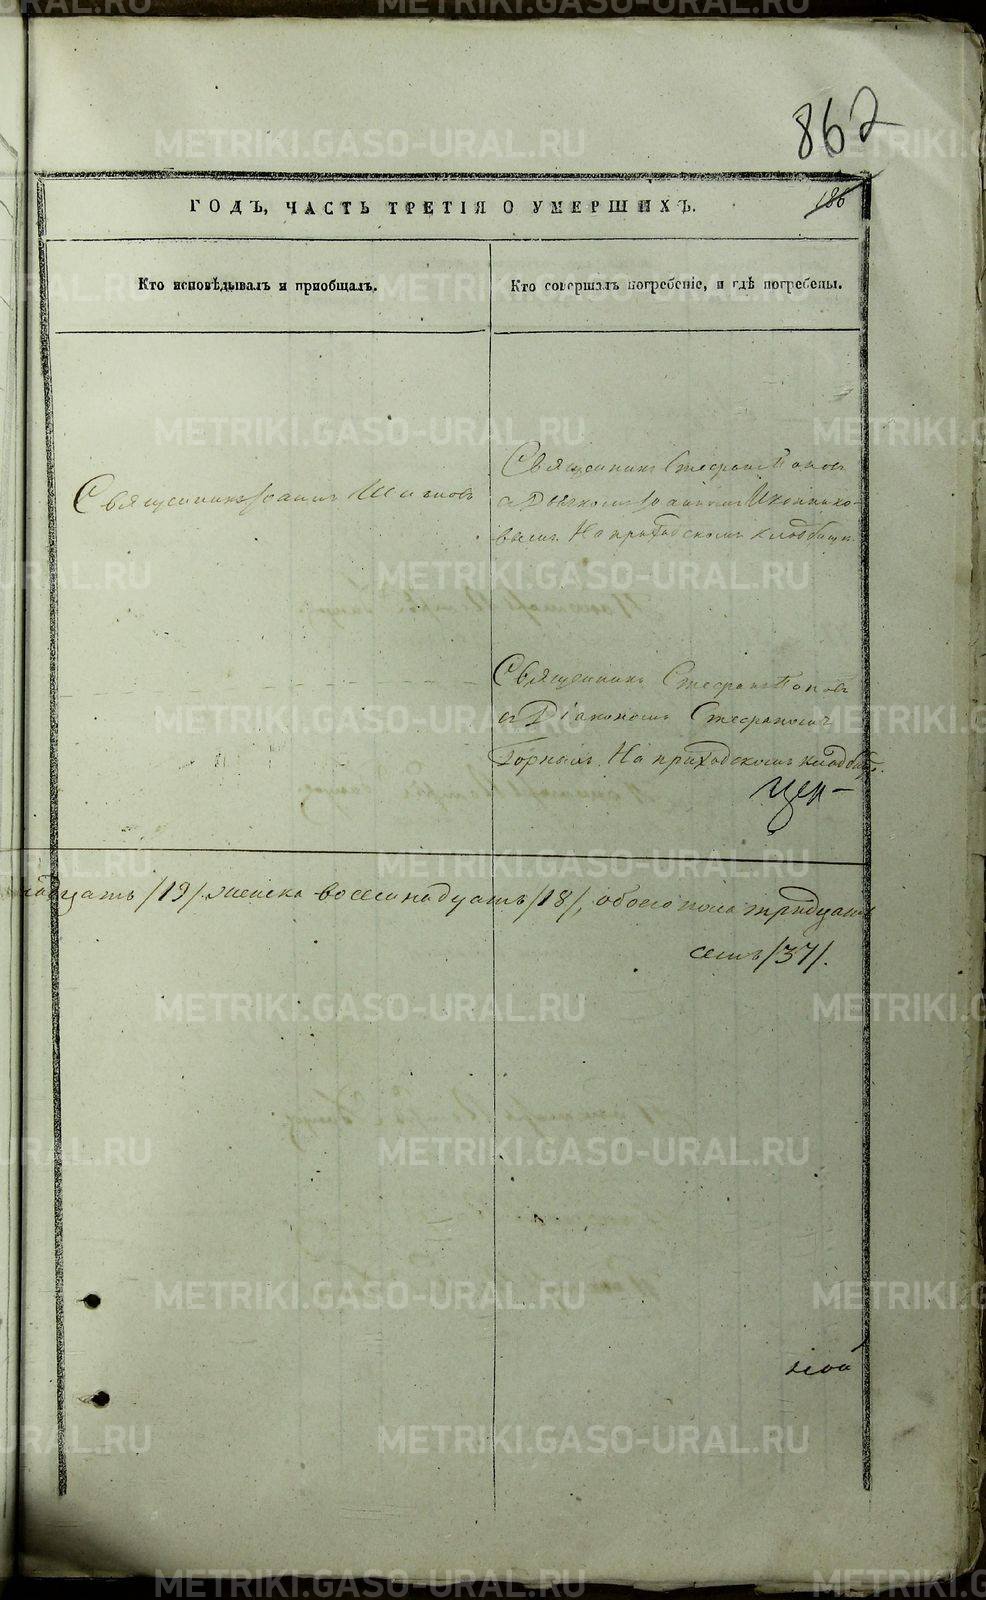 862
186
ГОДЪ, ЧАСТЬ ТРЕТІЯ О УМЕРШИХЪ.
Кто исповѣдывалъ и пріобщалъ.
Кто совершалъ погребеніе, и гдѣ погребены.
Священникъ Стефанъ Поповъ
Священникъ Іоаннъ Шишовъ
съ Дьячкомъ Іоанномъ Иконнико-
вымъ. На приходскомъ кладбищѣ.
Священникъ Стефанъ Поповъ
съ Діакономъ Стефаномъ
Горнымъ. На приходскомъ кладбищѣ.
Цен-
надцать /19/. женска восемнадцать /18/, обоего пола тридцать
семь /37/.
METRIKI.GASO-URAL.RU